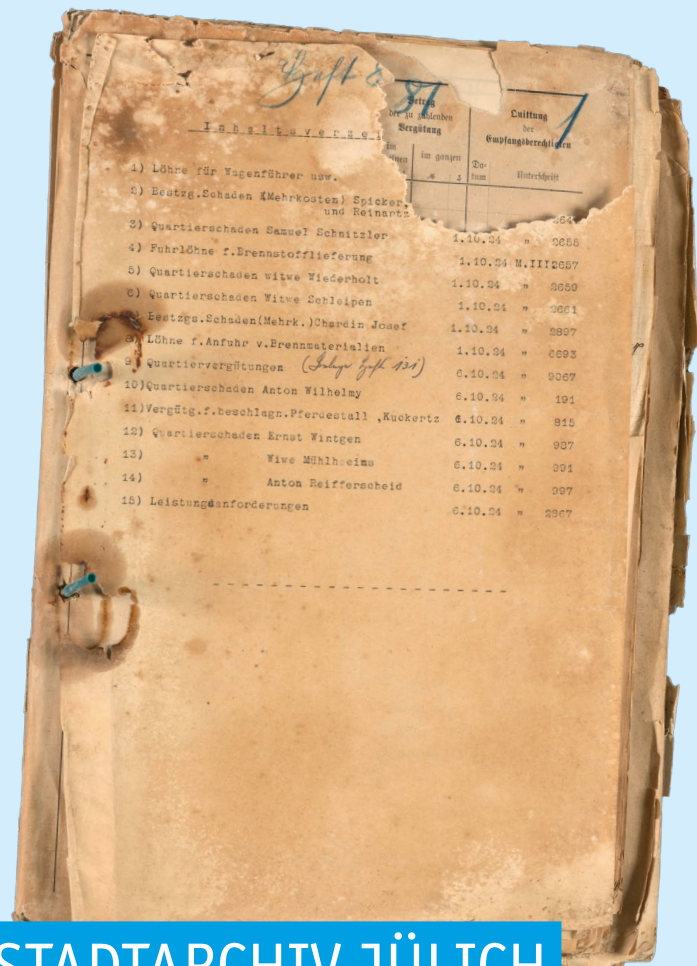 Heft 8 81 1
Inhaltsverzei
Betrag
der zu zahlenden
Vergütung
im ganzen
Quittung
der
Empfangsberechtigten
Da-
tum
Unterschrift
1) Löhne für Wagenführer usw.
2) Bestzg.Schaden (Mehrkosten) Spicker,
und Reinartz 264
3) Quartierschaden Samuel Schnitzler 1.10.24 " 2655
4) Fuhrlöhne f.Brennstofflieferung 1.10.24 M.III2657
5) Quartierschaden witwe Wiederholt 1.10.24 " 2659
6) Quartierschaden Witwe Schleipen 1.10.24 " 2661
Bestzgs.Schaden(Mehrk.)Chardin Josef 1.10.24 " 2897
Löhne f.Anfuhr v.Brennmaterialien 1.10.24 " 6693
9 Quartiervergütungen (Heft 131) 6.10.24 " 9067
10)Quartierschaden Anton Wilhelmy 6.10.24 " 191
11)Vergütg.f.beschlagn.Pferdestall ,Kuckertz 6.10.24 " 815
12) Quartierschaden Ernst Wintgen 6.10.24 " 987
13) " Wiwe Mühlheims 6.10.24 " 991
14) " Anton Reifferscheid 6.10.24 " 997
15) Leistungsanforderungen 6.10.24 " 2867
STADTARCHIV JÜLICH